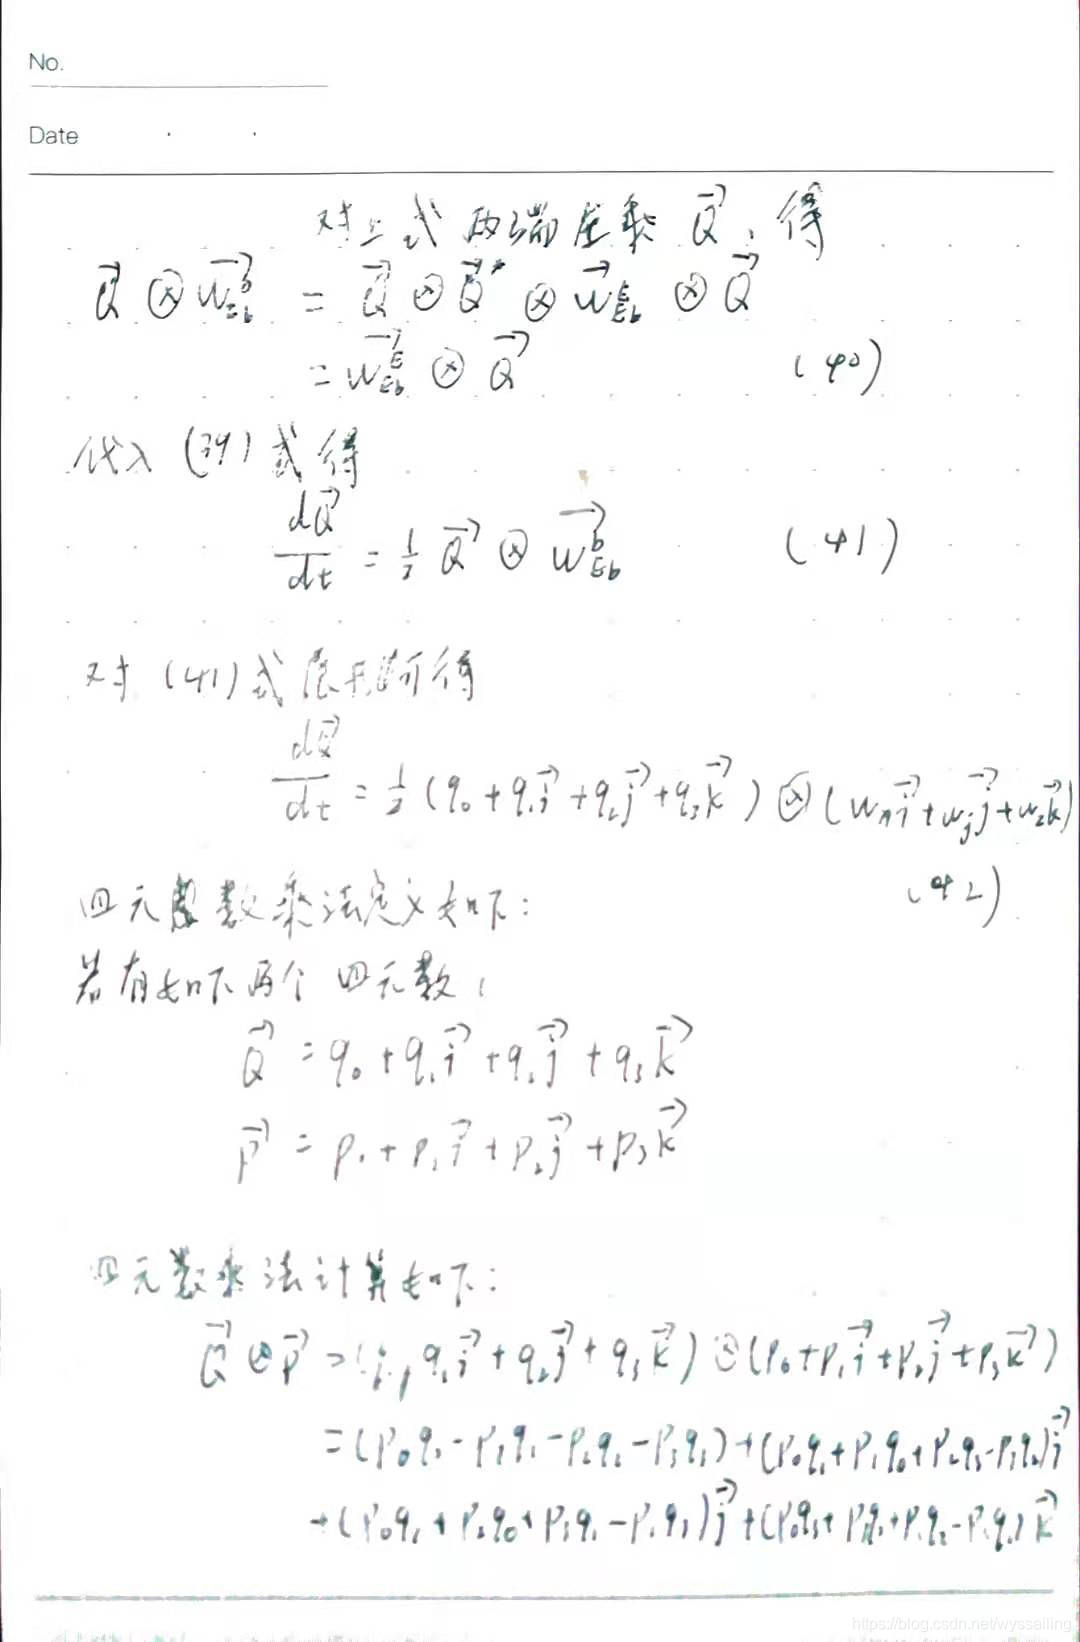 No.
Date
对上式两端左乘 Q⃗, 得
Q⃗ ⊗ w⃗_Eb^b = Q⃗ ⊗ Q⃗* ⊗ w⃗_Eb^E ⊗ Q⃗
= w⃗_Eb^E ⊗ Q⃗ (40)
代入 (39) 式得
dQ⃗/dt = 1/2 Q⃗ ⊗ w⃗_Eb^b (41)
对 (41) 式展开可得
dQ⃗/dt = 1/2 (q₀ + q₁i⃗ + q₂j⃗ + q₃k⃗) ⊗ (wₓi⃗ + w_yj⃗ + w_zk⃗)
(42)
四元数乘法定义如下:
若有如下两个四元数,
Q⃗ = q₀ + q₁i⃗ + q₂j⃗ + q₃k⃗
P⃗ = p₀ + p₁i⃗ + p₂j⃗ + p₃k⃗
四元数乘法计算如下:
Q⃗ ⊗ P⃗ = ( q₁i⃗ + q₂j⃗ + q₃k⃗) ⊗ (p₀ + p₁i⃗ + p₂j⃗ + p₃k⃗)
= (p₀q₀ - p₁q₁ - p₂q₂ - p₃q₃) + (p₀q₁ + p₁q₀ + p₂q₃ - p₃q₂)i⃗
+ (p₀q₂ + p₂q₀ + p₃q₁ - p₁q₃)j⃗ + (p₀q₃ + p₃q₀ + p₁q₂ - p₂q₁)k⃗
https://blog.csdn.net/wyssailing